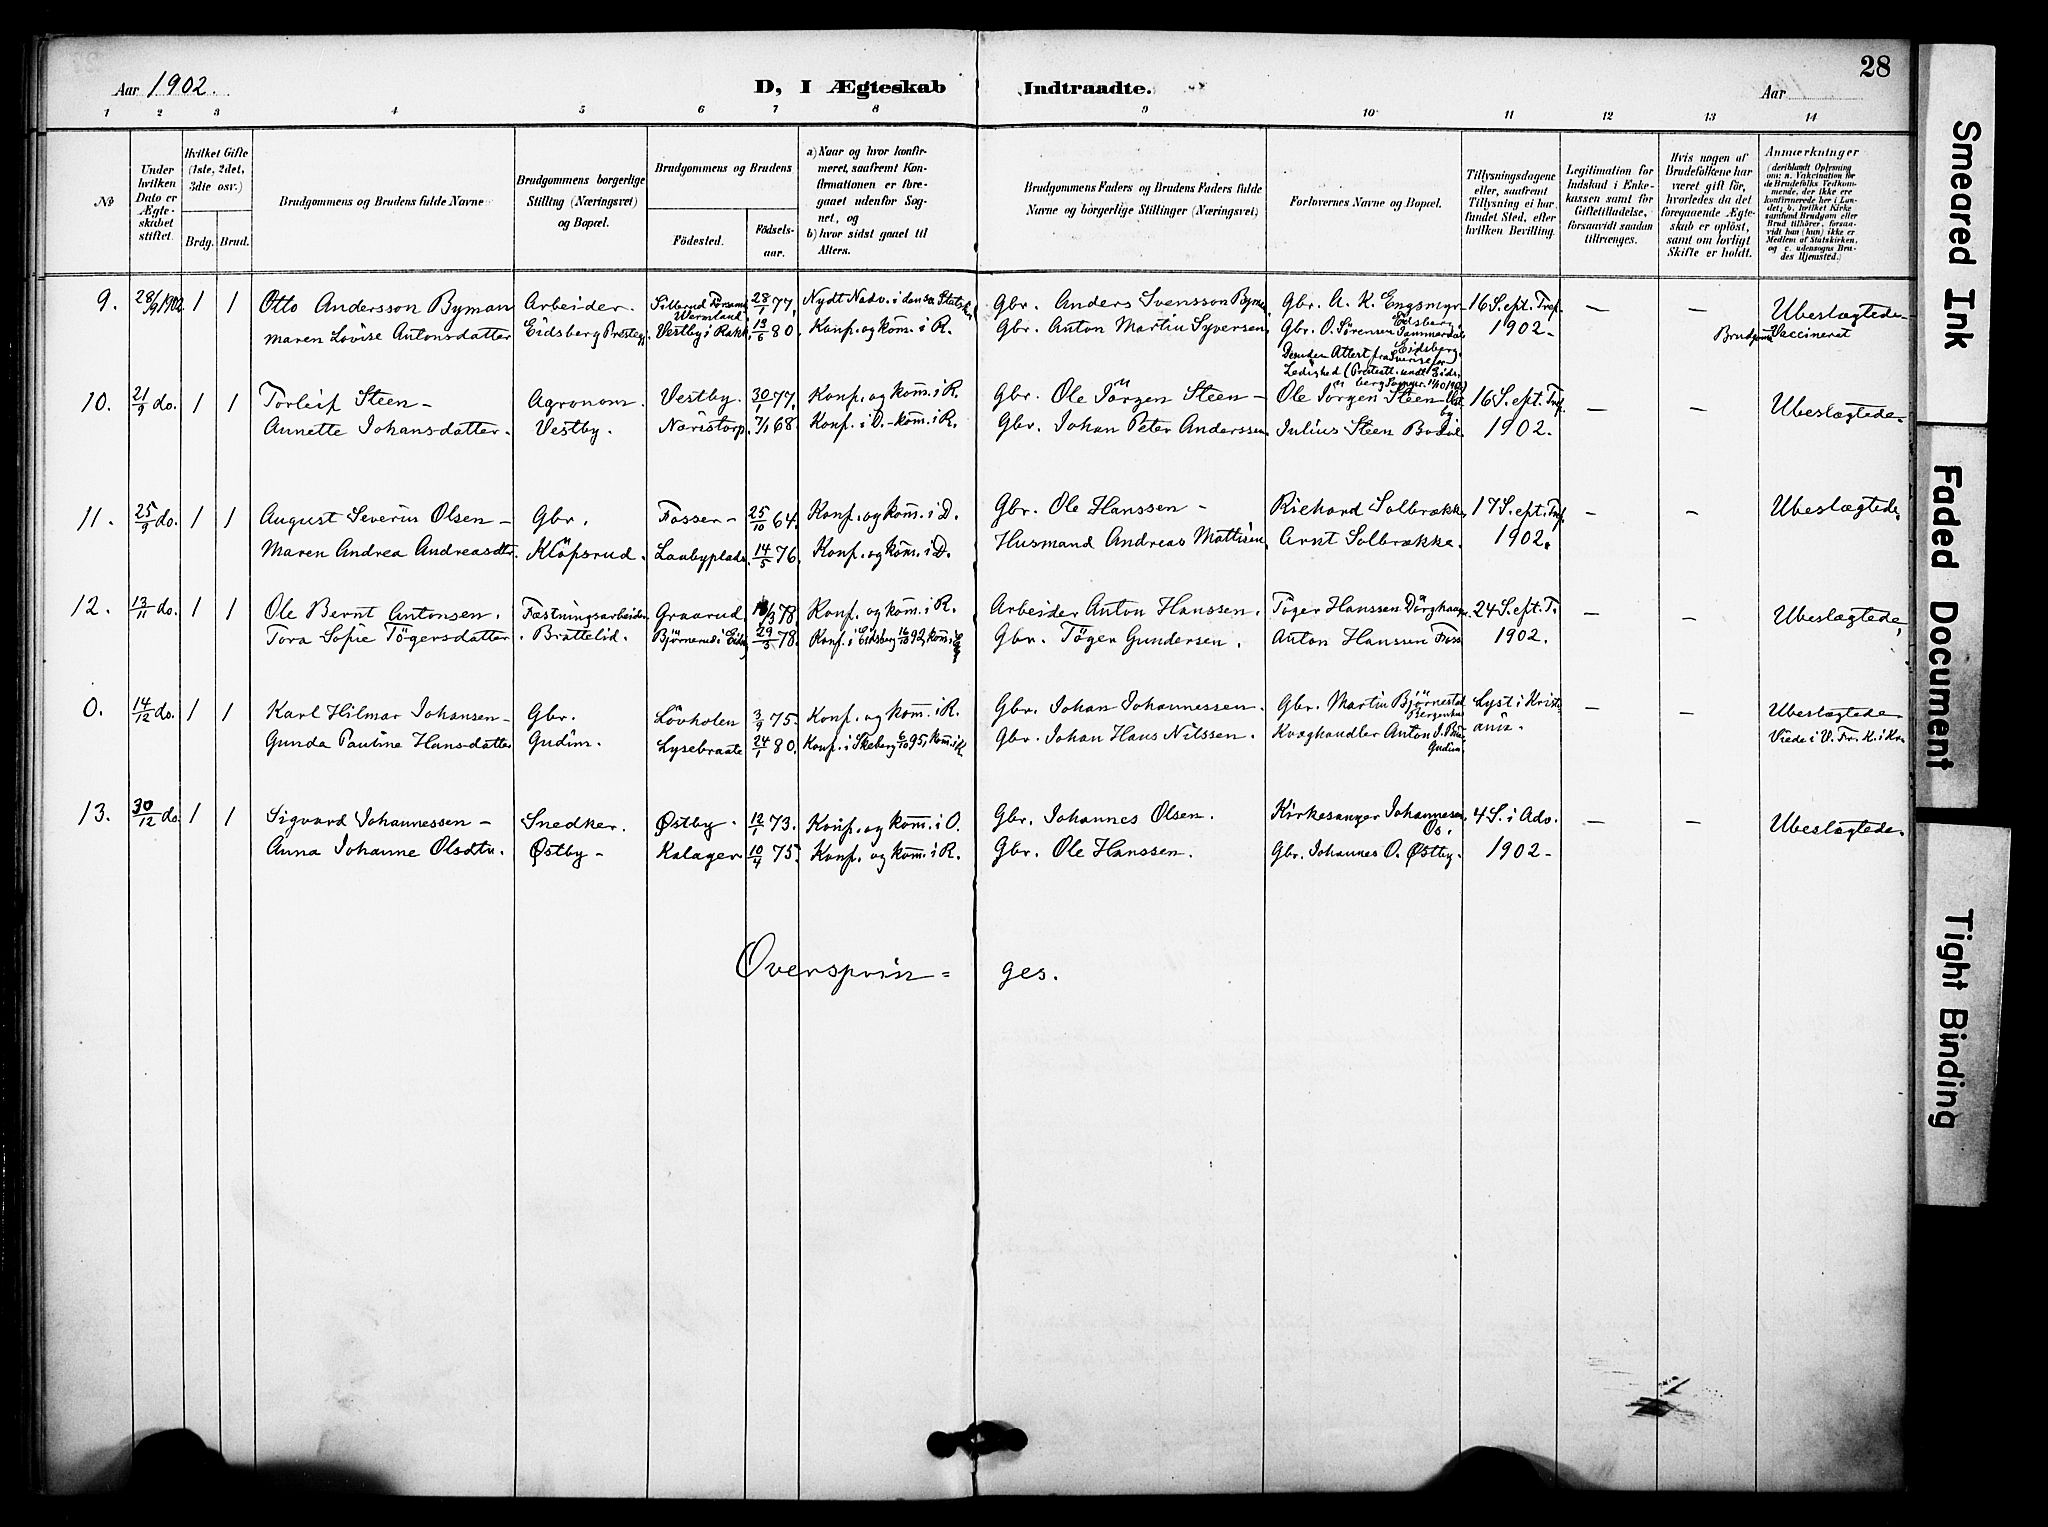 28
Aar 1902.
D, I Ægteskab Indtraadte.
Aar
1 2 3 4 5 6 7 8 9 10 11 12 13 14
No
Under hvilken Dato er Ægteskabet stiftet.
Hvilket Gifte (1ste, 2det, 3die osv.)
Brdg. Brud.
Brudgommens og Brudens fulde Navne
Brudgommens borgerlige Stilling (Næringsvei) og Bopæl.
Brudgommens og Brudens
Födested. Födselsaar.
a) Naar og hvor konfirmeret, saafremt Konfirmationen er foregaaet udenfor Sognet, og
b) hvor sidst gaaet til Alters.
Brudgommens Faders og Brudens Faders fulde Navne og borgerlige Stillinger (Næringsvei)
Forlovernes Navne og Bopæl.
Tillysningsdagene eller, saafremt Tillysning ei har fundet Sted, efter hvilken Bevilling.
Legitimation for Indskud i Enkekassen samt for Giftetilladelse, forsaavidt saadan tiltrænges.
Hvis nogen af Brudefolkene har været gift för, hvorledes da det foregaaende Ægteskab er oplöst, samt om lovligt Skifte er holdt.
Anmærkninger
(deriblandt Oplysning om: a. Vakcination for de Brudefolks Vedkommende, der ikke ere konfirmerede her i Landet; b. hvilket Kirkesamfund Brudgom eller Brud tilhörer, forsaavidt han (hun) ikke er Medlem af Statskirken, og c. udensogns Brudes Hjemsted.)
9. 28/9 1902. 1 1 Otto Andersson Byman Arbeider. Sillerud Värmland 28/1 77. Nydt Nadv. i den sv. Statsk. Gbr. Anders Svensson Byman Gbr. A. K. Engsmyr Eidsberg. 16 S. ept. Tref. — — Ubeslægtede
Maren Lovise Antonsdatter Eidsberg Prestegj. Vestby i Rakk. 13/6 80. Konf. og kom̄. i R. Gbr. Anton Martin Syversen. Gbr. O. Sörensen Eidsberg. 1902. Brudgom Vaccineret
Ledighed
10. 21/9 do. 1 1 Torleif Steen — Agronom. Vestby. 30/1 77. Konf. og kom̄. i R. Gbr. Ole Jörgen Steen — Ole Jörgen Steen Vestby. 16 S. ept. Tref. — — Ubeslægtede
Annette Johansdatter. Vestby. Näristorp. 7/1 68. Konf. i D. — kom̄. i R. Gbr. Johan Peter Anderssen. Julius Steen 1902.
11. 25/9 do. 1 1 August Severin Olsen — Gbr. Fosser — 25/10 64. Konf. og kom̄. i D. Gbr. Ole Hanssen — Richard Solbrække 17 S. ept. Tref. — — Ubeslægtede.
Maren Andrea Andreasdtr. Klöfsrud. Laabyplads. 14/5 76. Konf. og kom̄. i D. Husmand Andreas Mattisen. Arnt Solbrække. 1902.
12. 13/11 do. 1 1 Ole Bernt Antonsen. Fæstningsarbeider Graarud. 78. Konf. og kom̄. i R. Arbeider Anton Hanssen. Töger Hanssen 24 S. ept. T. — — Ubeslægtede
Tora Sofie Tögersdatter. Brattelid. Björnerud i Eidsb. 29/5 78. Konf. i Eidsberg 16/10 92, kom̄. i Gbr. Töger Gundersen. Anton Hanssen Foss 1902.
0. 14/12 do. 1 1 Karl Hilmar Johansen — Gbr. Lövholen 3/9 75. Konf. og kom̄. i R. Gbr. Johan Johannessen. Gbr. Martin Björnestad Lyst i Kristiania. — — Ubeslægtede
Gunda Pauline Hansdatter Gudim. Lysebraate 24/1 80. Konf. i Skeberg 6/10 95, kom̄. i R. Gbr. Johan Hans Nilssen. Kvæghandler Anton Gudim Viede i V. Fr. K. i Kra
13. 30/12 do. 1 1 Sigvard Johannessen — Snedker. Østby. 12/1 73. Konf. og kom̄. i O. Gbr. Johannes Olsen. Kirkesanger Johannesen, Os. 4 S. i Adv. — — Ubeslægtede.
Anna Johanne Olsdtr. Østby — Kalager. 10/4 75. Konf. og kom̄. i R. Gbr. Ole Hanssen. Gbr. Johannes O. Østby. 1902 —
Overspringes.
Smeared Ink
Faded Document
Tight Binding